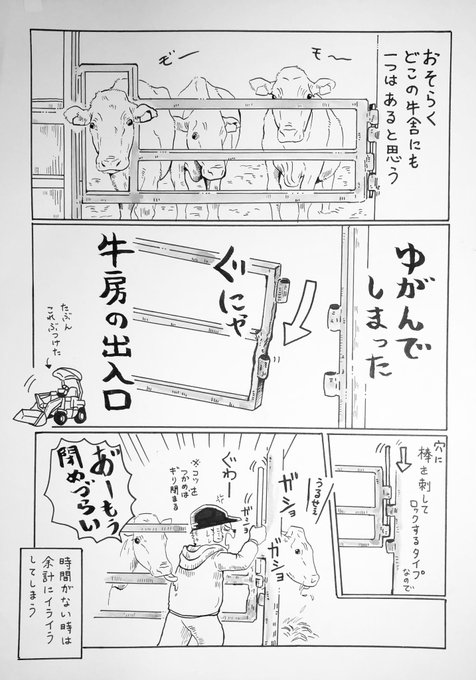 おそらく
どこの牛舎にも
一つはあると思う
モ〜
ギ〜
ゆがんで
しまった
ぐにゃ
牛房の出入口
たぶん
これぶつけた
穴に
棒を刺して
ロックするタイプ
なので
うるせぇ
ガショ
ガショ
ガショ
ぐわー
※コツを
つかめば
ギリ閉まる
あ゛ーもう
閉めづらい
時間がない時は
余計にイライラ
してしまう